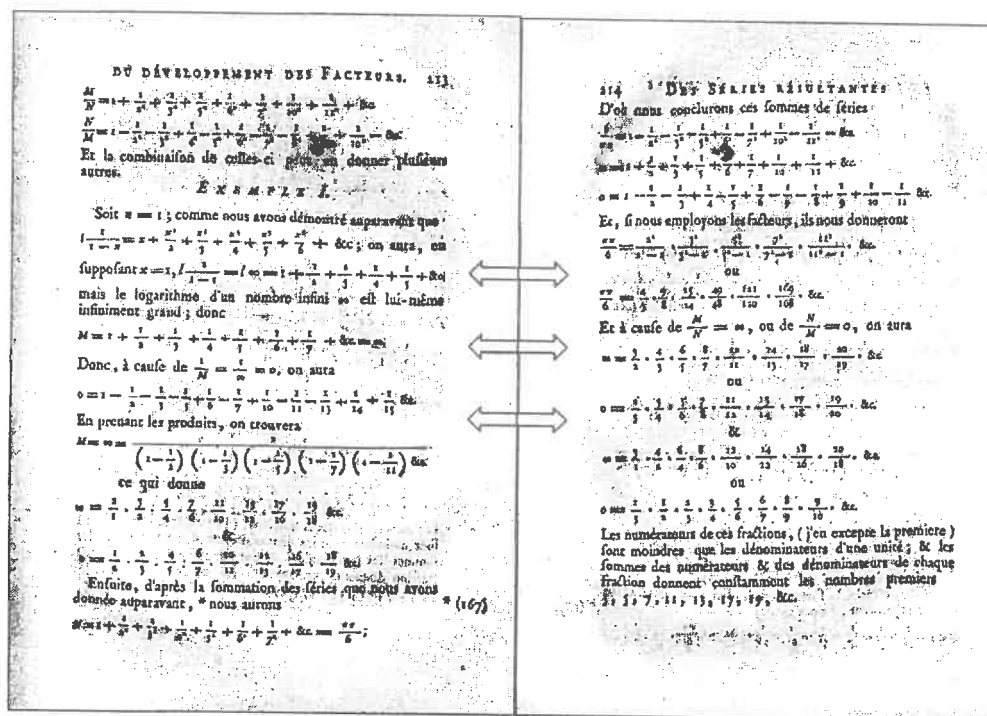 DU DÉVELOPPEMENT DES FACTEURS. 213
Et la combinaison de celles-ci peut en donner plusieurs
autres.
EXEMPLE I.
Soit n = 1 ; comme nous avons démontré auparavant que
l 1/(1-x) = x + x²/2 + x³/3 + x⁴/4 + x⁵/5 + x⁶/6 + &c ; on aura, en
supposant x=1, l 1/(1-1) = l ∞ = 1 + 1/2 + 1/3 + 1/4 + 1/5 + &c;
mais le logarithme d'un nombre infini ∞ est lui-même
infiniment grand ; donc
M = 1 + 1/2 + 1/3 + 1/4 + 1/5 + 1/6 + 1/7 + &c = ∞.
Donc, à cauſe de 1/M = 1/∞ = 0, on aura
0 = 1 - 1/2 - 1/3 - 1/5 + 1/6 - 1/7 + 1/10 - 1/11 - 1/13 + 1/14 + 1/15 &c.
En prenant les produits, on trouvera
M = ∞ = 1/((1-1/2)(1-1/3)(1-1/5)(1-1/7)(1-1/11) &c.
ce qui donne
∞ = 2/1 . 3/2 . 5/4 . 7/6 . 11/10 . 13/12 . 17/16 . 19/18 &c.
&
0 = 1/2 . 2/3 . 4/5 . 6/7 . 10/11 . 12/13 . 16/17 . 18/19 &c.
Enſuite, d'après la ſommation des ſéries que nous avons
donnée auparavant, * nous aurons * (167)
214 DES SÉRIES RÉSULTANTES
D'où nous conclurons ces ſommes de ſéries
∞ = 1 + 1/2 + 1/3 + 1/5 + 1/6 + 1/7 + 1/10 + 1/11 + &c.
Et, ſi nous employons les facteurs, ils nous donneront
ou
ππ/6 = 4/3 . 9/8 . 25/24 . 49/48 . 121/120 . 169/168 . &c.
Et à cauſe de M/N = ∞, ou de N/M = 0, on aura
∞ = 3/2 . 4/3 . 6/5 . 8/7 . 12/11 . 14/13 . 18/17 . 20/19 . &c
ou
0 = 2/3 . 3/4 . 5/6 . 7/8 . 11/12 . 13/14 . 17/18 . 19/20 . &c.
&
∞ = 3/1 . 4/2 . 6/4 . 8/6 . 12/10 . 14/12 . 18/16 . 20/18 . &c.
ou
0 = 1/3 . 1/2 . 2/3 . 3/4 . 5/6 . 6/7 . 8/9 . 9/10 . &c.
Les numérateurs de ces fractions, (j'en excepte la premiere)
ſont moindres que les dénominateurs d'une unité ; & les
ſommes des numérateurs & des dénominateurs de chaque
fraction donnent conſtamment les nombres premiers
3, 5, 7, 11, 13, 17, 19, &c.